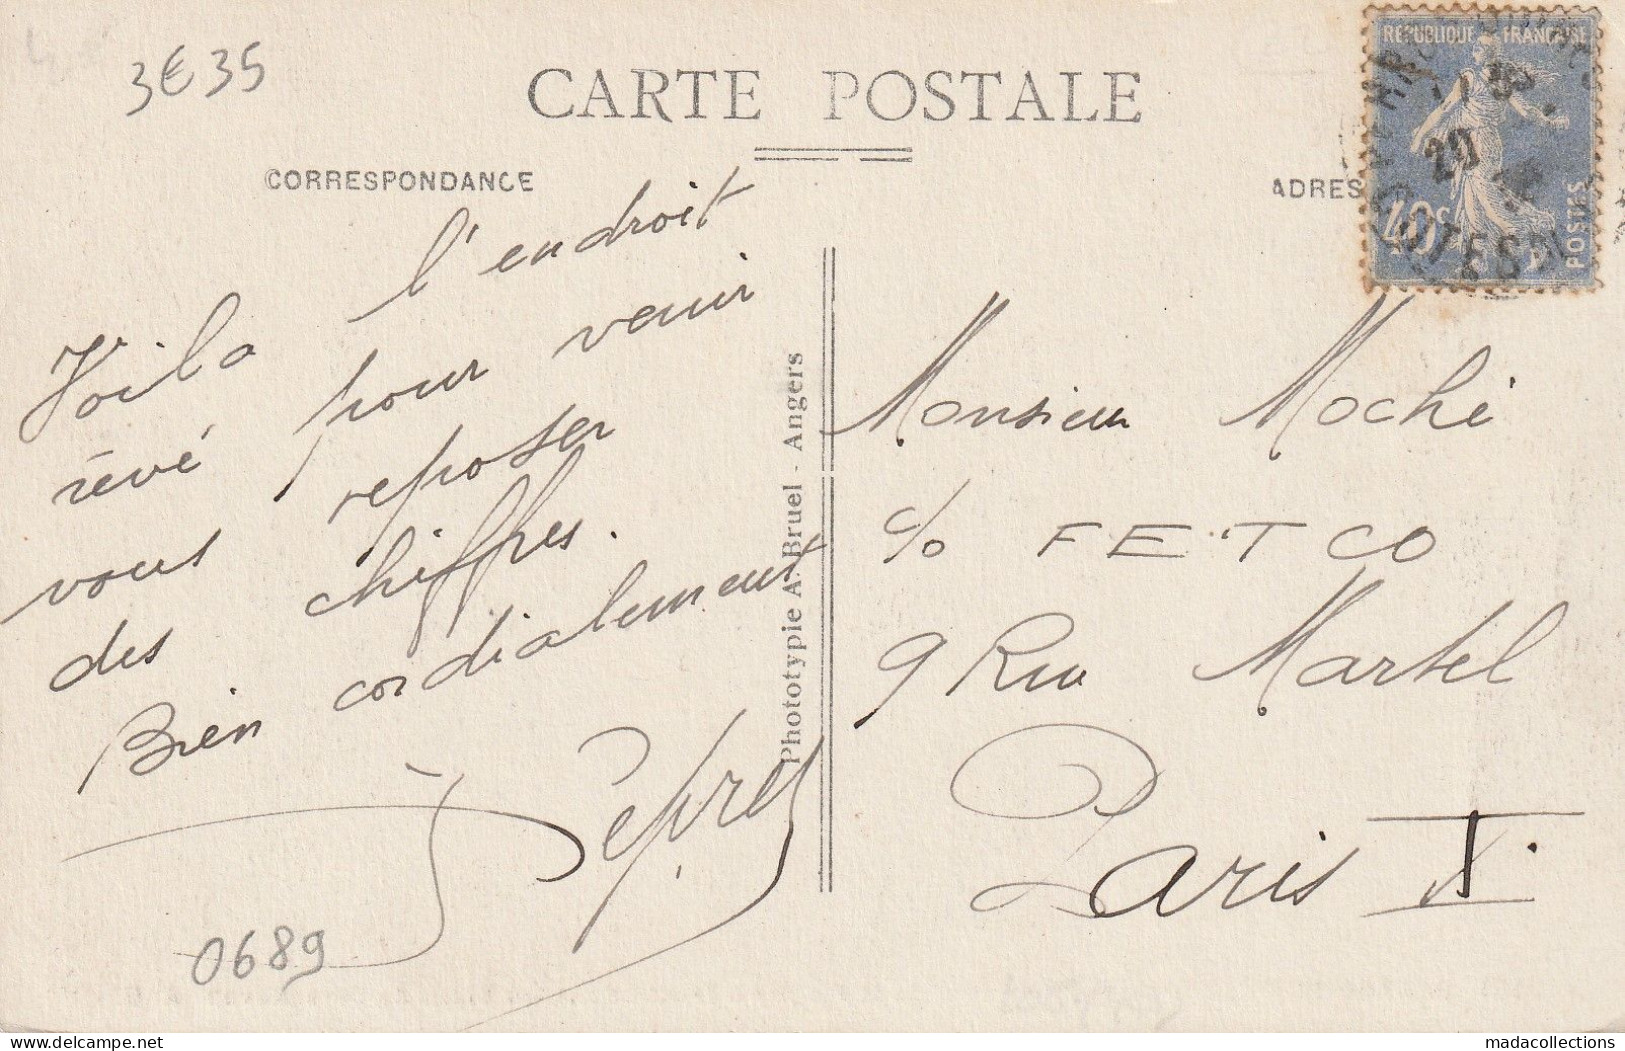 3€35
CARTE POSTALE
CORRESPONDANCE
ADRES
REPUBLIQUE FRANÇAISE
40c
POSTES
20
Voila l'endroit
rêvé pour venir
vous reposer
des chiffres.
Bien cordialement
0689
Phototypie A. Bruel - Angers
Monsieur Moché
c/o FETCO
9 Rue Martel
Paris X
madacollections